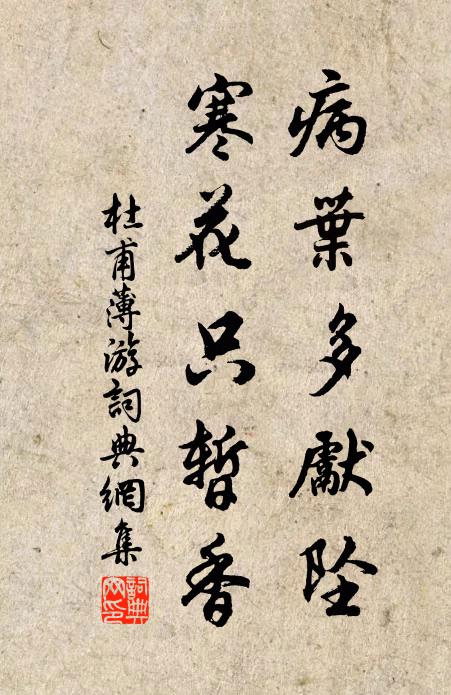 病葉多獻墜
寒花只暫香
杜甫薄游詞典網集
詞典网印